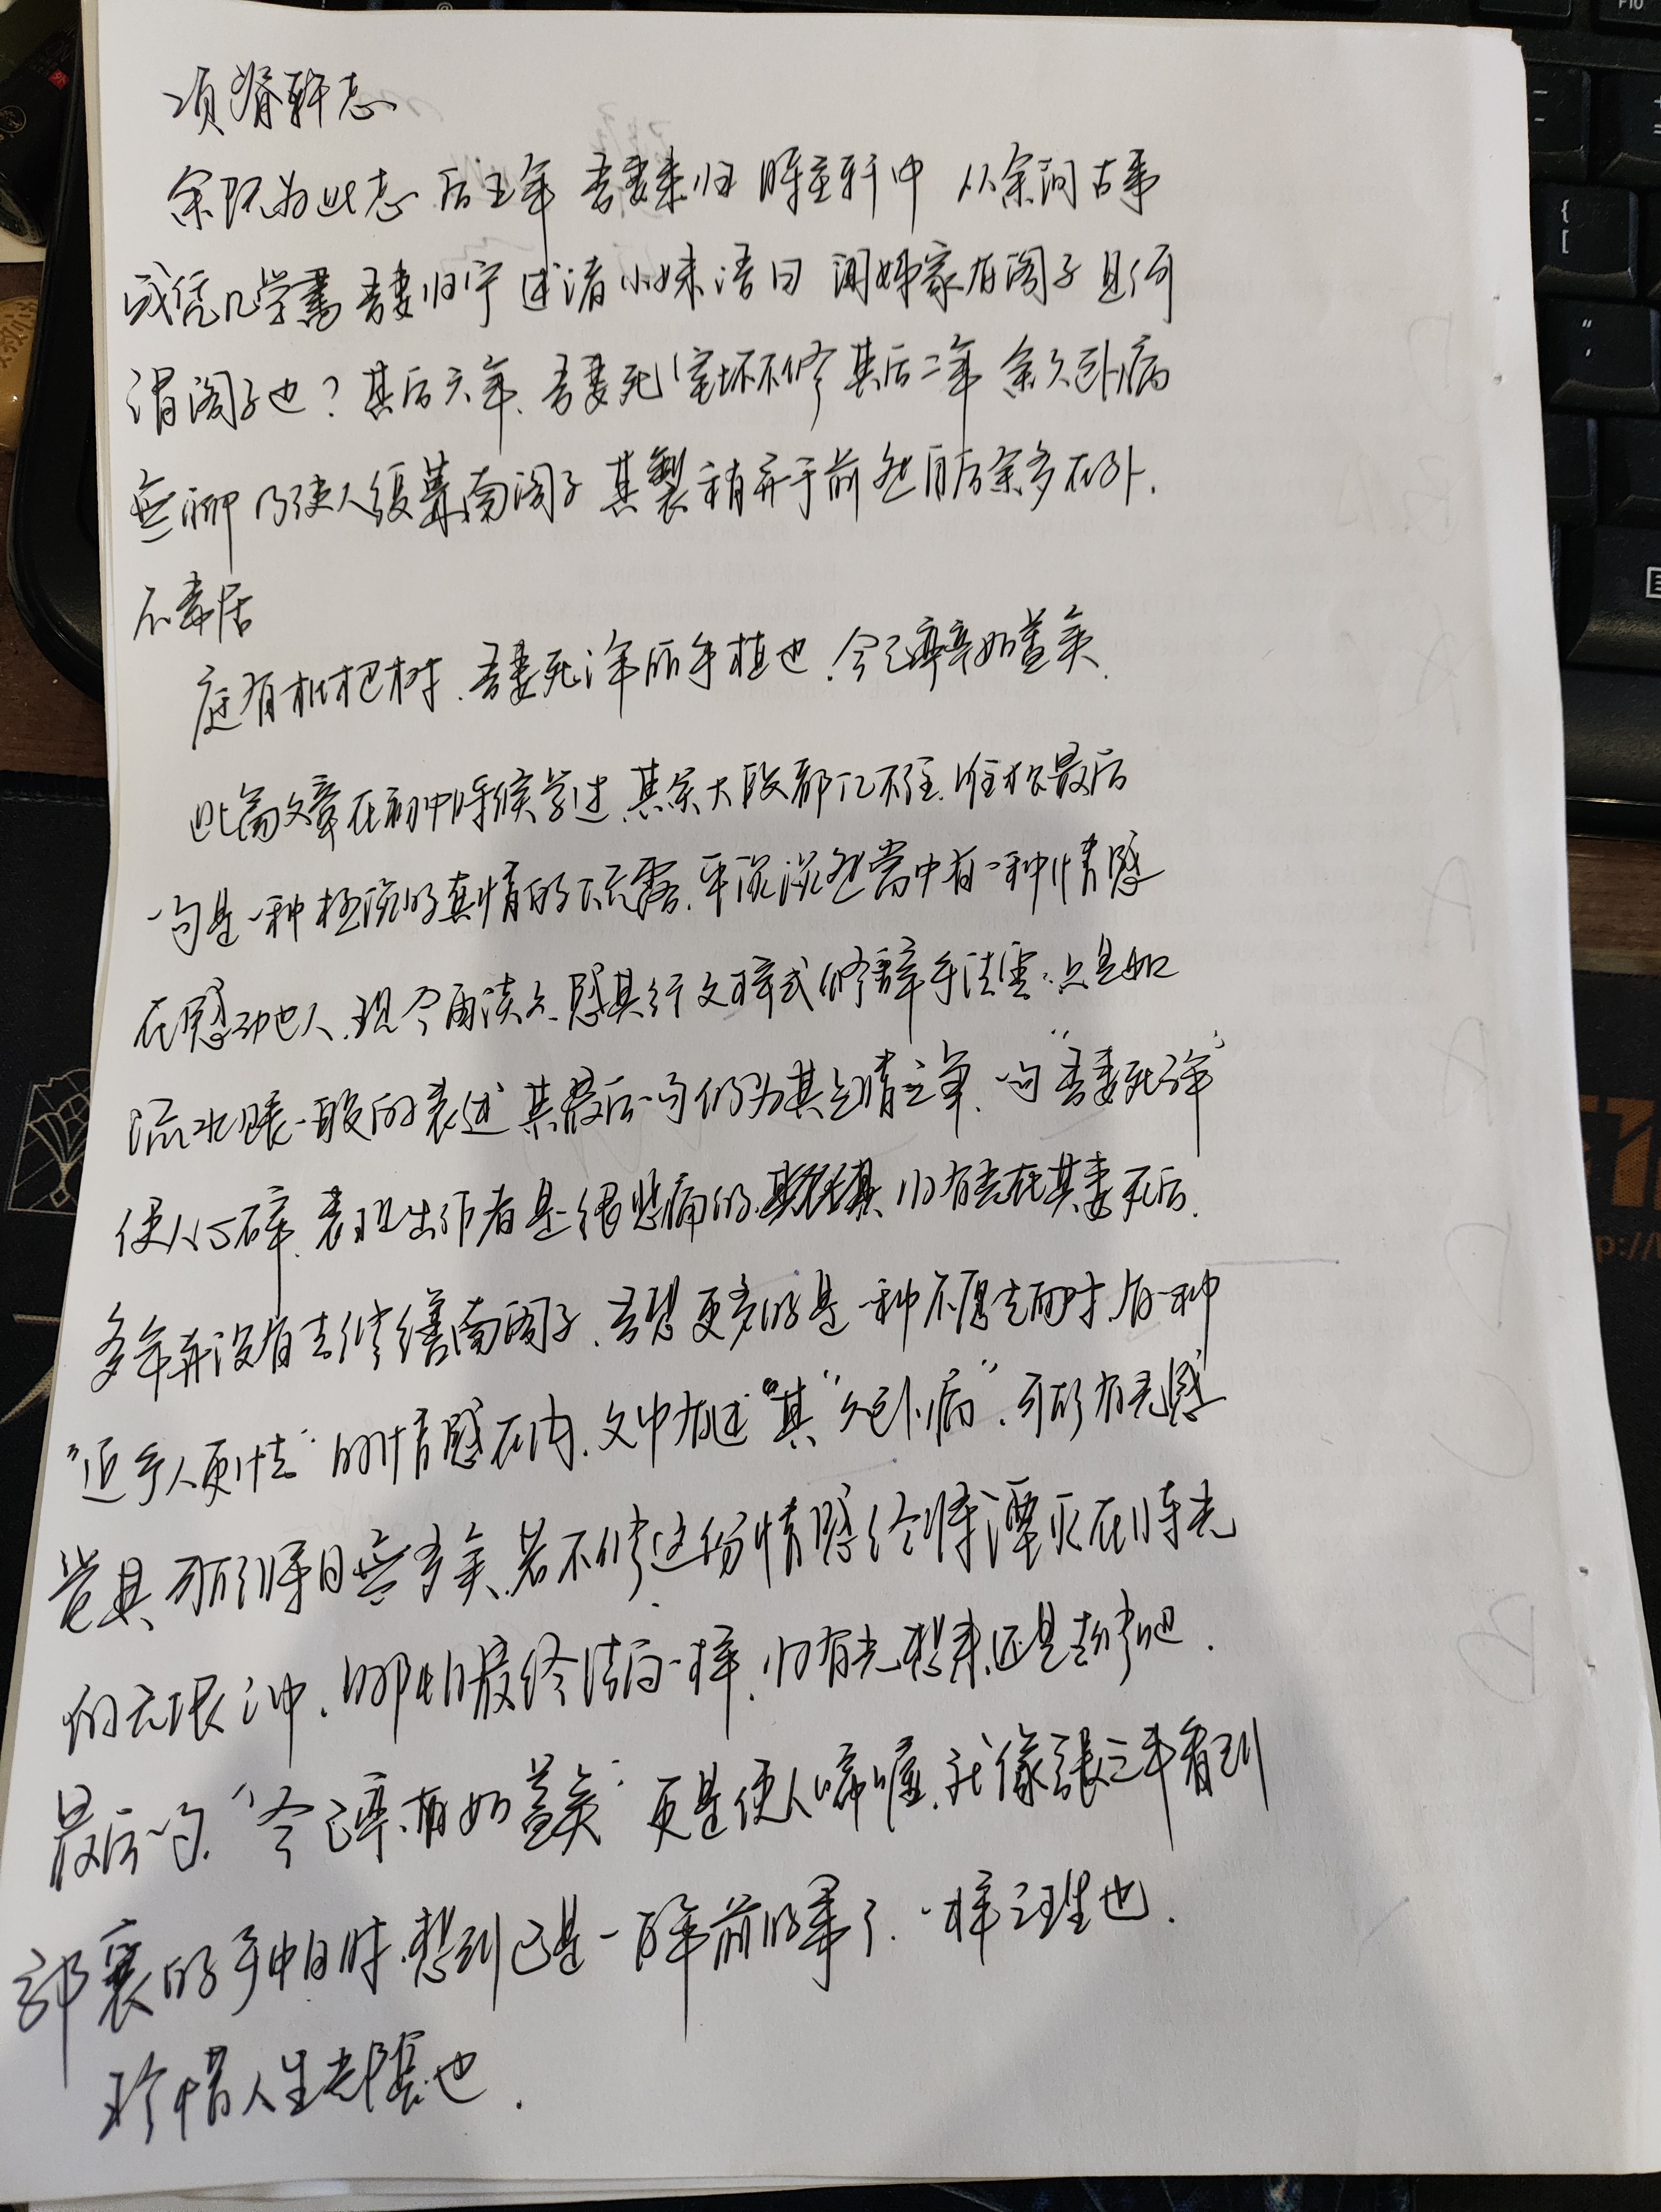 项脊轩志
余既为此志 后五年 吾妻来归 时至轩中 从余问古事
或凭几学書 吾妻归宁 述诸小妹语曰 闻姊家有阁子 且何
谓阁子也？其后六年、吾妻死 室坏不修 其后二年 余久卧病
無聊 乃使人復葺南阁子 其製稍异于前 然自后余多在外.
不常居
庭有枇杷树、吾妻死之年所手植也.今已亭亭如盖矣、
此篇文章在初中时候学过、其余大段都记不住、唯有最后
一句是一种极浓的真情的流露、平淡淡然当中有一种情感
在感动他人、现今再读之、感其行文样式修辞手法里、只是如
流水账一般的表述 其最后一句仍为其点睛之笔、一句“吾妻死之年”
使人心碎、表现出作者是很悲痛的、归有光在其妻死后、
多年并没有去修缮南阁子、吾想更多的是一种不愿去面对、有一种
“近乡人更怯”的情感在内、文中有述“其“久卧病”、可能有光感
觉其、所剩时日無多矣、若不修这份情感终将湮灭在时光
的无限之中、哪怕最终结局一样、归有光想来还是去修吧.
最后一句、“今已亭亭如盖矣”更是使人唏嘘、就像張三丰看到
郭襄的手帕时、想到已是一百年前的事了、一样之理也.
珍惜人生光陰也.
F10
{
[